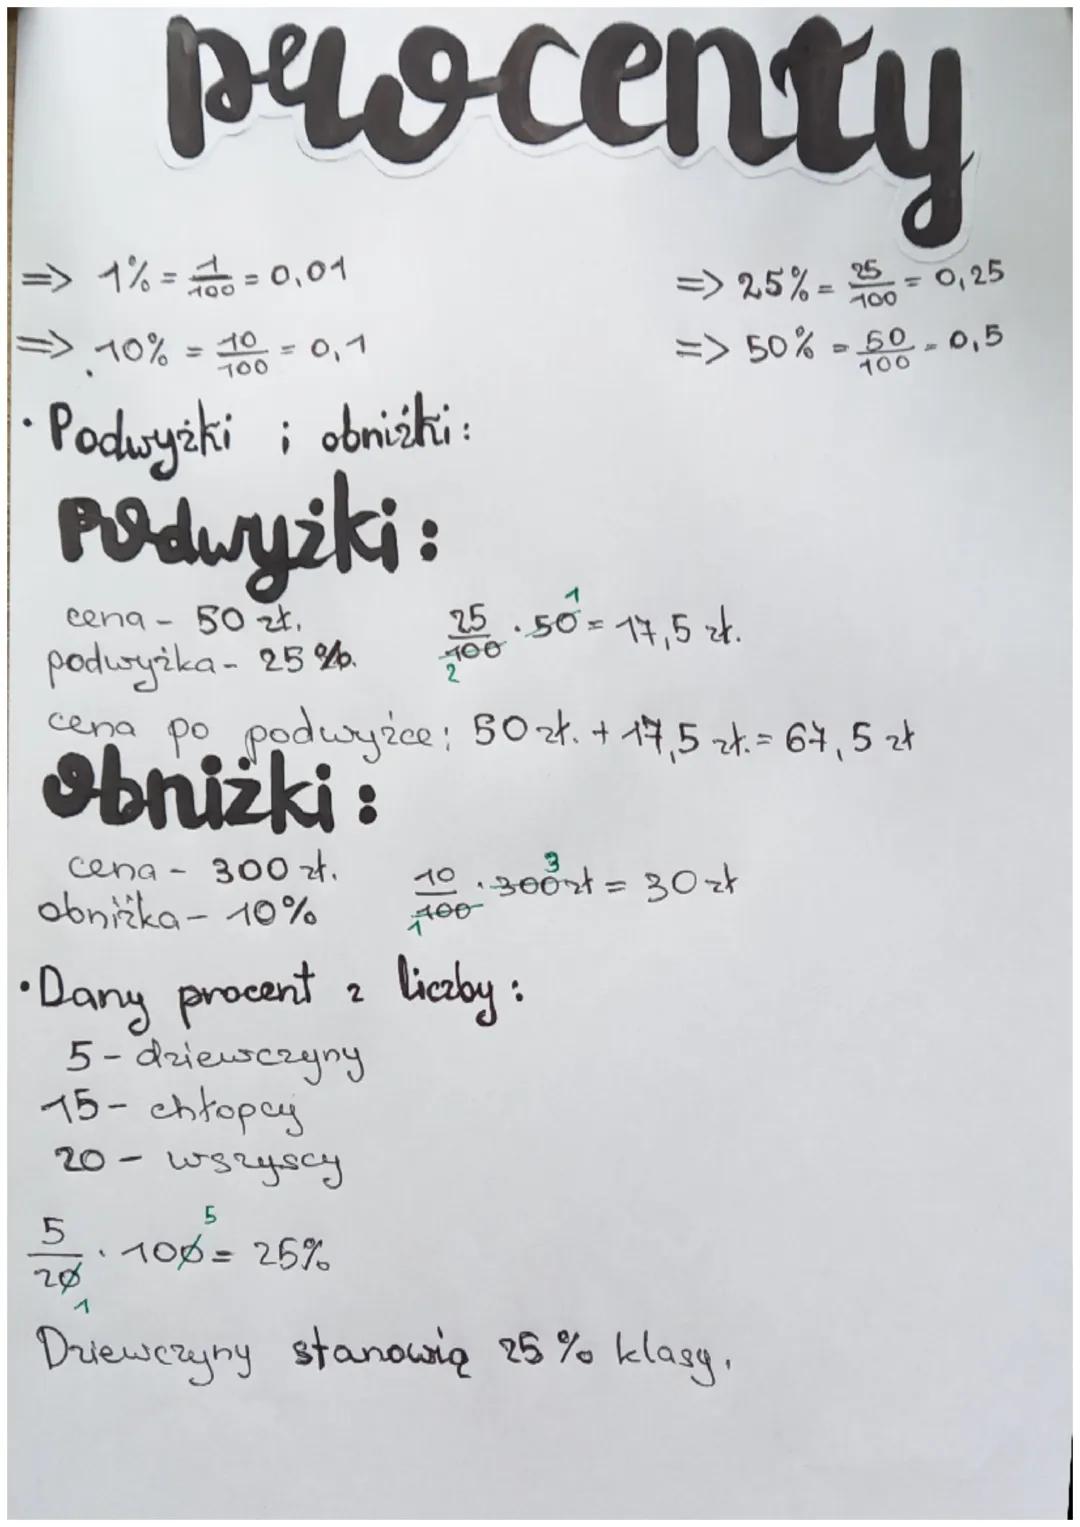 procenty
=> 1% = 1/100 = 0,01
=> 25% = 25/100 = 0,25
=> 10% = 10/100 = 0,1
=> 50% = 50/100 = 0,5
• Podwyżki i obniżki:
Podwyżki:
cena - 50 zł.
podwyżka - 25%.
25/100 2 · 50 1 = 17,5 zł.
cena po podwyżce: 50 zł. + 17,5 zł. = 67,5 zł
Obniżki:
cena - 300 zł.
obniżka - 10%
10/100 1 · 300 3 zł = 30 zł
• Dany procent z liczby:
5 - dziewczyny
15 - chłopcy
20 - wszyscy
5/20 1 · 100 5 = 25%
Dziewczyny stanowią 25% klasy.